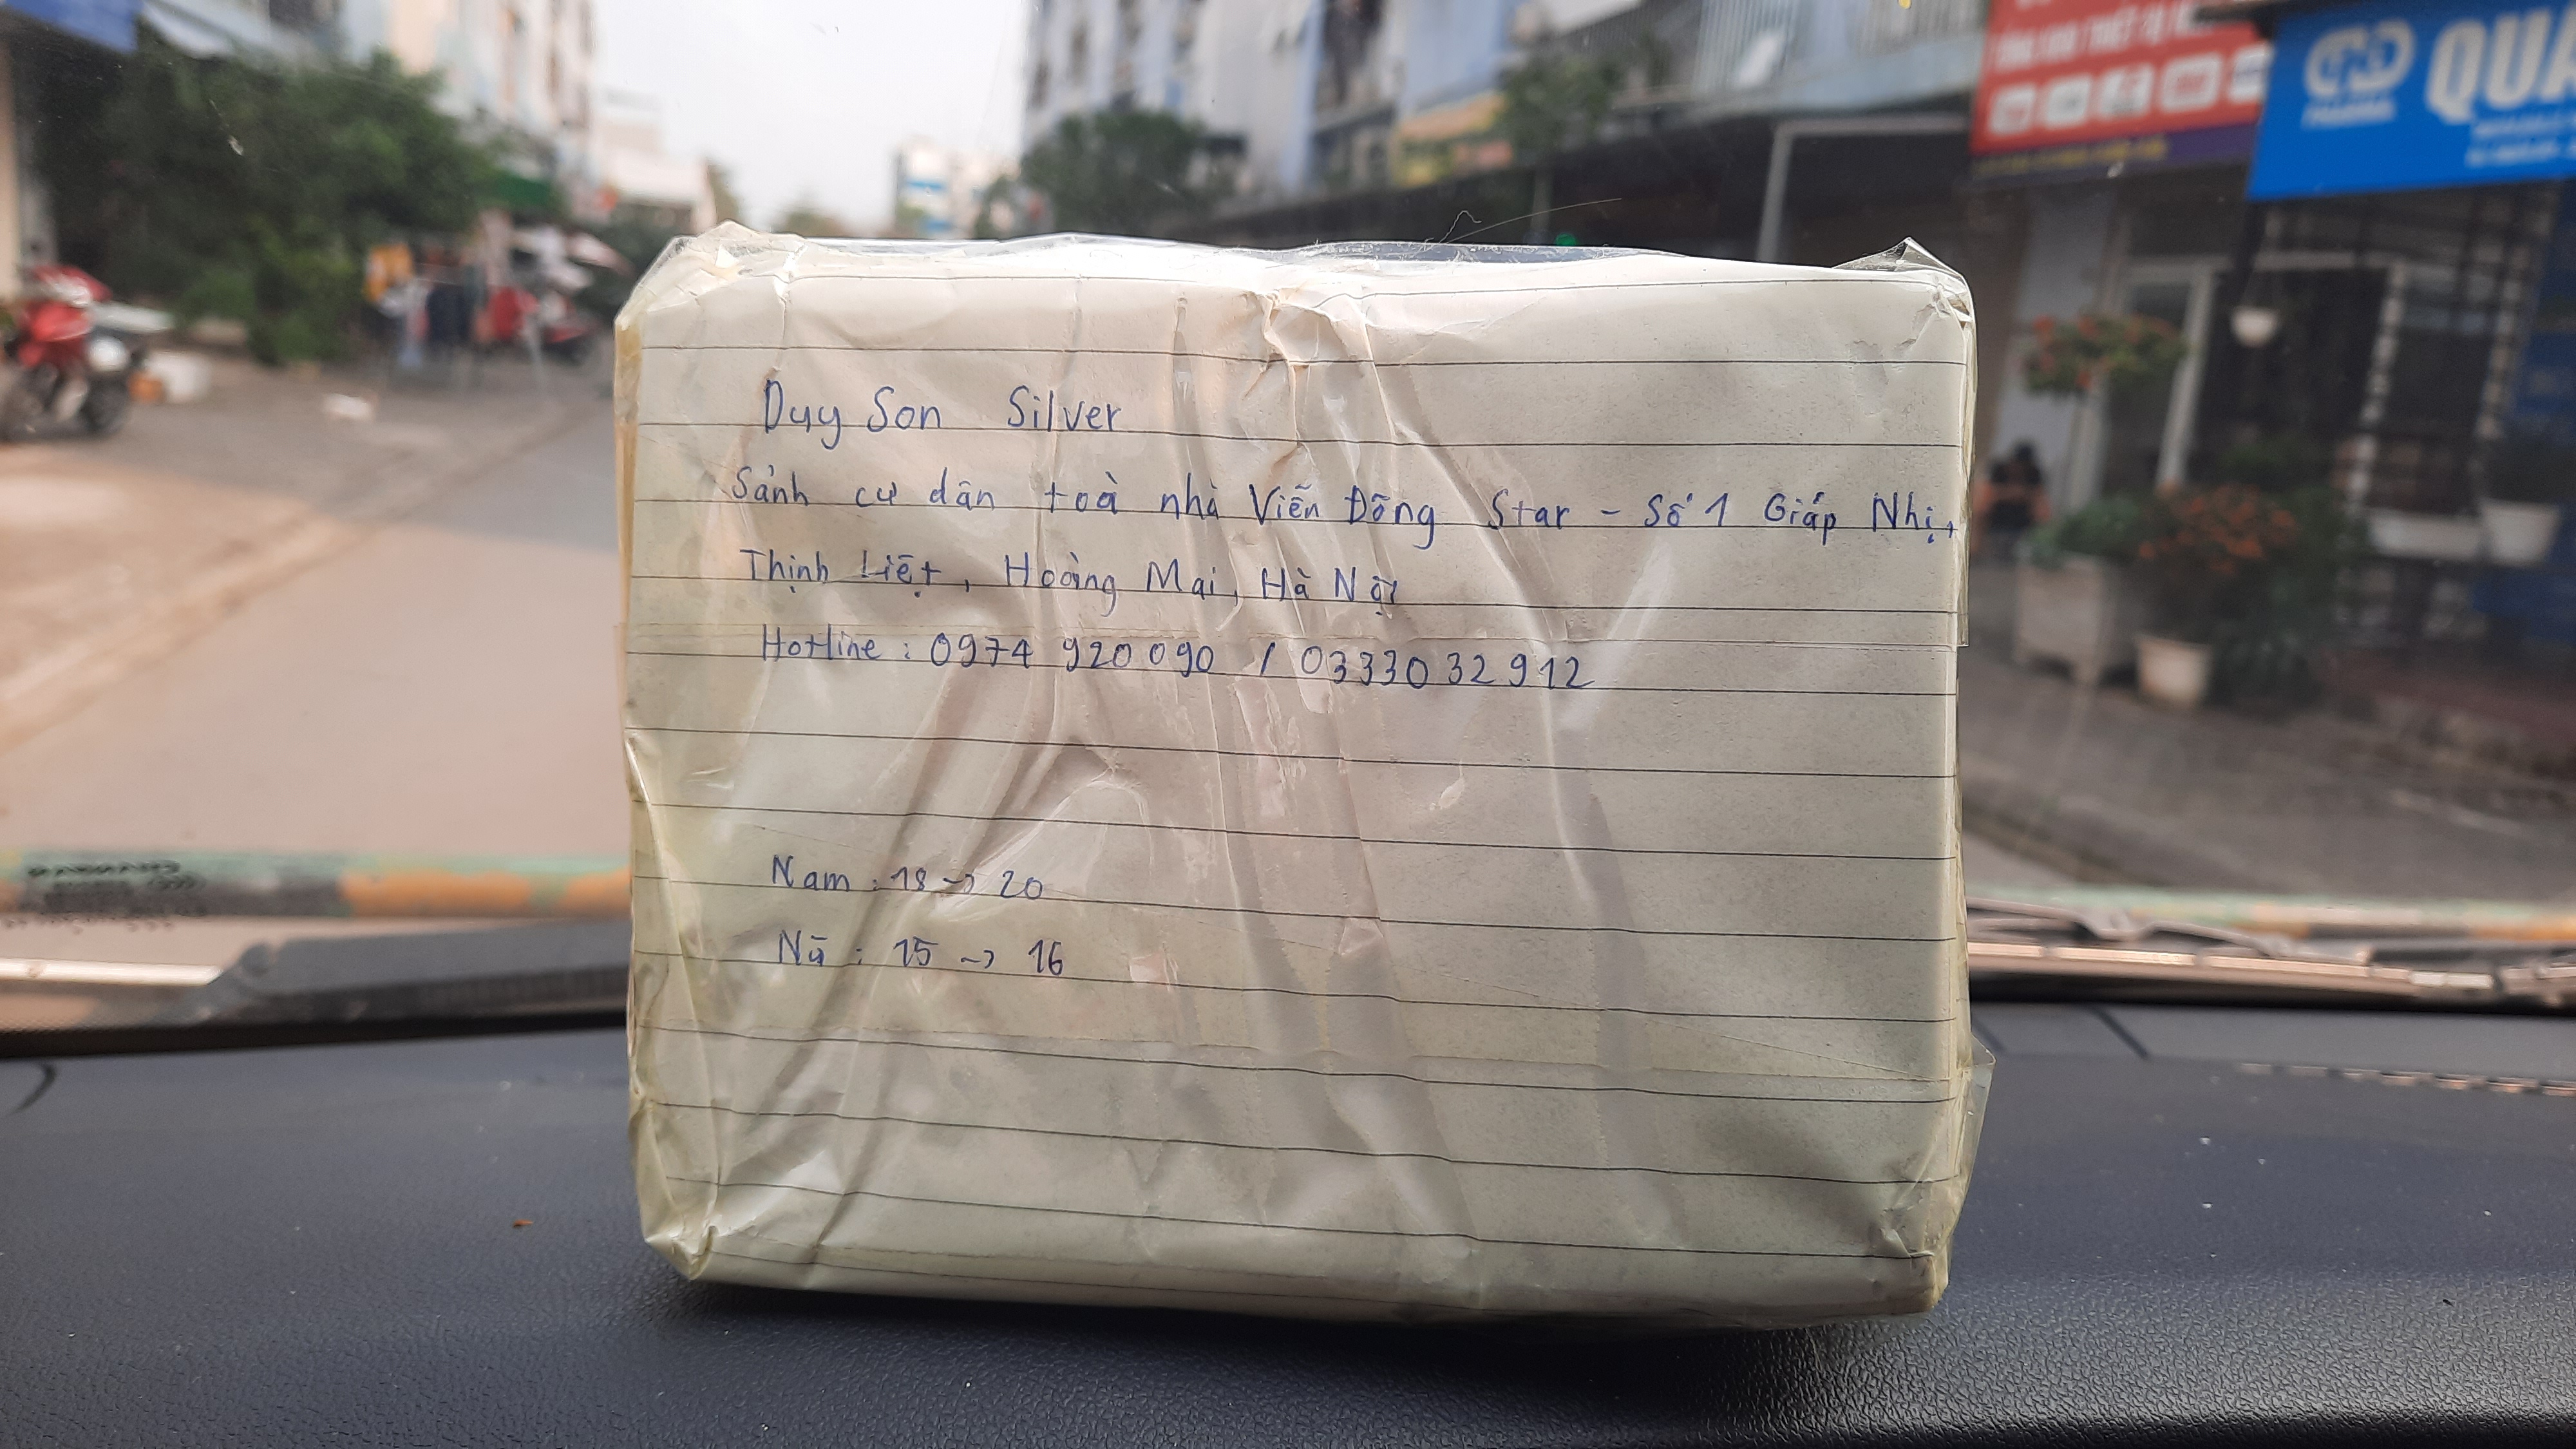 QUA
Duy Son Silver
Sảnh cư dân toà nhà Viễn Đông Star - Số 1 Giáp Nhị,
Thịnh Liệt, Hoàng Mai, Hà Nội
Hotline : 0974 920 090 / 0333032912
Nam : 18 -> 20
Nữ : 15 -> 16